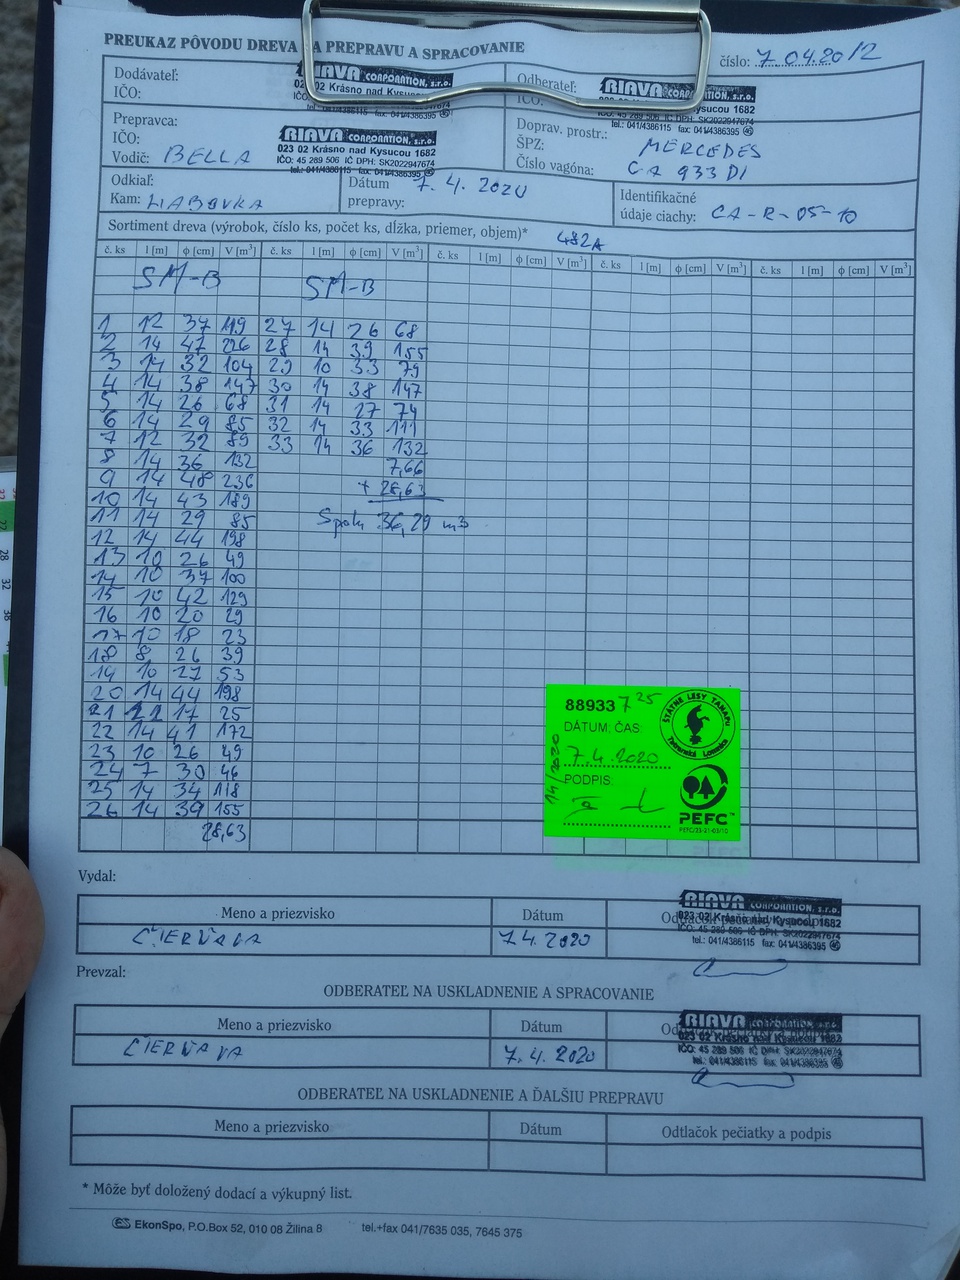 PREUKAZ PÔVODU DREVA NA PREPRAVU A SPRACOVANIE
číslo: 7.04.20/2
Dodávateľ:
IČO:
RIAVA CORPORATION, s.r.o.
023 02 Krásno nad Kysucou 1682
tel.: 041/4386115 fax: 041/4386395
Odberateľ:
IČO:
RIAVA CORPORATION, s.r.o.
Kysucou 1682
IČO: 45 289 506 IČ DPH: SK2022947674
tel.: 041/4386115 fax: 041/4386395
Prepravca:
IČO:
Vodič: BELLA
RIAVA CORPORATION, s.r.o.
023 02 Krásno nad Kysucou 1682
IČO: 45 289 506 IČ DPH: SK2022947674
tel.: 041/4386115 fax: 041/4386395
Doprav. prostr.: MERCEDES
ŠPZ: CA 933 DI
Číslo vagóna:
Odkiaľ:
Kam:
Dátum prepravy: 7. 4. 2020
Identifikačné
údaje ciachy: CA-R-05-10
Sortiment dreva (výrobok, číslo ks, počet ks, dĺžka, priemer, objem)* 482A
č. ks l [m] ϕ [cm] V [m³] č. ks l [m] ϕ [cm] V [m³] č. ks l [m] ϕ [cm] V [m³] č. ks l [m] ϕ [cm] V [m³] č. ks l [m] ϕ [cm] V [m³]
SM-B SM-B
1 12 37 119 27 14 26 68
2 14 47 226 28 14 39 155
3 14 32 104 29 10 33 79
4 14 38 147 30 14 38 147
5 14 26 68 31 14 27 74
6 14 29 85 32 14 33 111
7 12 32 89 33 14 36 132
8 14 36 132 7,66
9 14 48 236 + 28,63
10 14 43 189
11 14 29 85 Spolu 36,29 m3
12 14 44 198
13 10 26 49
14 10 37 100
15 10 42 129
16 10 20 29
17 10 18 23
18 8 26 39
19 10 27 53
20 14 44 198
21 11 17 25
22 14 41 172
23 10 26 49
24 7 30 46
25 14 34 118
26 14 39 155
28,63
88933 7 25
ŠTÁTNE LESY TANAPU
Tatranská Lomnica
DÁTUM, ČAS:
7. 4. 2020
14/2020
PODPIS:
PEFC™
PEFC/23-21-03/10
Vydal:
Meno a priezvisko Dátum
ČIERŇAVA 7.4. 2020
RIAVA CORPORATION, s.r.o.
023 02 Krásno nad Kysucou 1682
IČO: 45 289 506 IČ DPH: SK2022947674
tel.: 041/4386115 fax: 041/4386395
Prevzal:
ODBERATEĽ NA USKLADNENIE A SPRACOVANIE
Meno a priezvisko Dátum
ČIERŇAVA 7. 4. 2020
RIAVA CORPORATION, s.r.o.
023 02 Krásno nad Kysucou 1682
IČO: 45 289 506 IČ DPH: SK2022947674
tel.: 041/4386115 fax: 041/4386395
ODBERATEĽ NA USKLADNENIE A ĎALŠIU PREPRAVU
Meno a priezvisko Dátum Odtlačok pečiatky a podpis
* Môže byť doložený dodací a výkupný list.
EkonSpo, P.O.Box 52, 010 08 Žilina 8 tel.+fax 041/7635 035, 7645 375